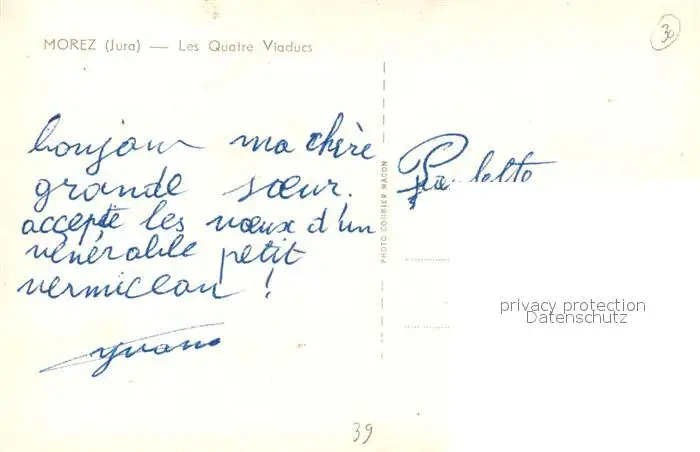 MOREZ (Jura) — Les Quatre Viaducs
30
bonjour ma chère
grande sœur.
accepte les vœux d'un
vénérable petit
vermiceau !
yvano
PHOTO COMBIER MACON
privacy protection
Datenschutz
39